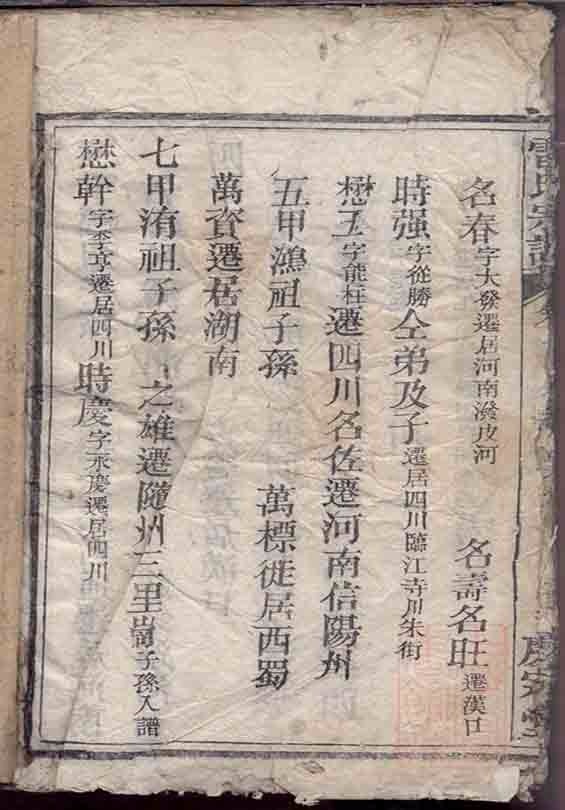 雷氏宗譜
名春字大發遷居河南潑皮河 名壽名旺遷漢口
時强字從勝仝弟及子遷居四川臨江寺川朱街
懋玉字能在遷四川名佐遷河南信陽州
五甲鴻祖子孫 萬標徙居西蜀
萬資遷居湖南
七甲洧祖子孫 之雄遷隨州三里崗子孫入譜
懋幹字季亨遷居四川時慶字永慶遷居四川